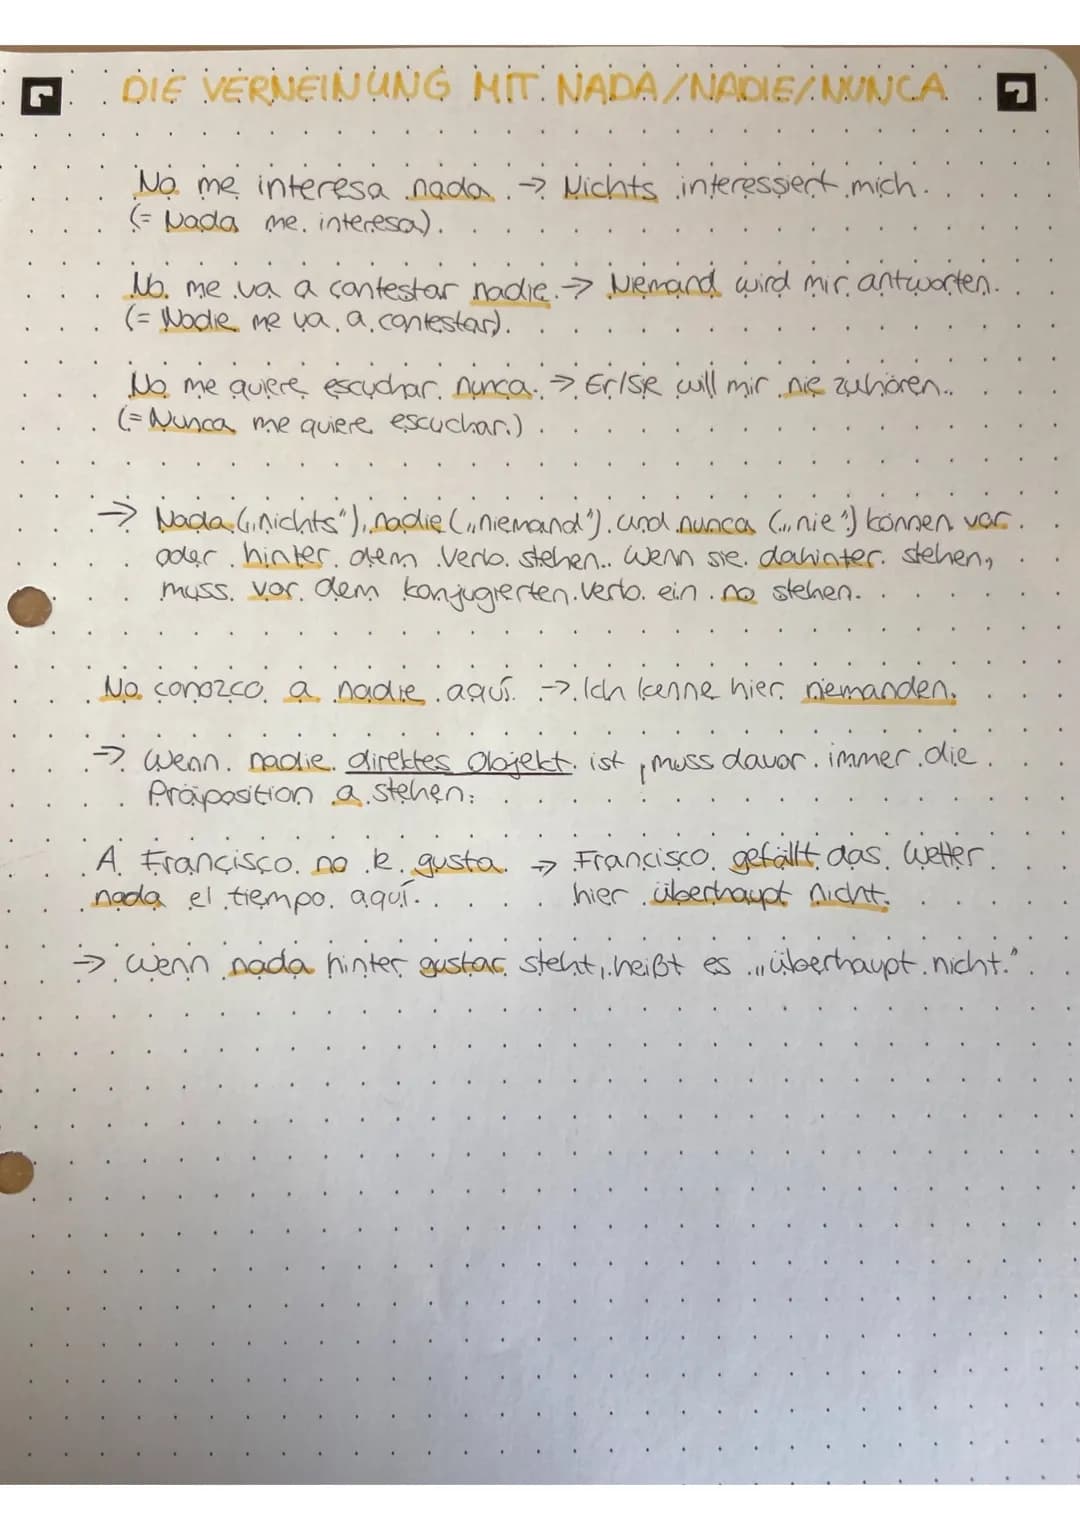 DIE VERNEINUNG MIT NADA/NADIE/NUNCA
No me interesa nada. → Nichts interessiert mich.
(= Nada me interesa).
No me va a contestar nadie. → Niemand wird mir antworten.
(= Nadie me va a contestar).
No me quiere escuchar nunca. → Er/Sie will mir nie zuhören.
(= Nunca me quiere escuchar.)
→ Nada („nichts“), nadie („niemand“) und nunca („nie“) können vor
oder hinter dem Verb stehen. Wenn sie dahinter stehen,
muss vor dem konjugierten Verb ein no stehen.
No conozco a nadie aquí. → Ich kenne hier niemanden.
→ Wenn nadie direktes Objekt ist, muss davor immer die
Präposition a stehen:
A Francisco no le gusta → Francisco gefällt das Wetter
nada el tiempo aquí. hier überhaupt nicht.
→ Wenn nada hinter gustar steht, heißt es „überhaupt nicht.“